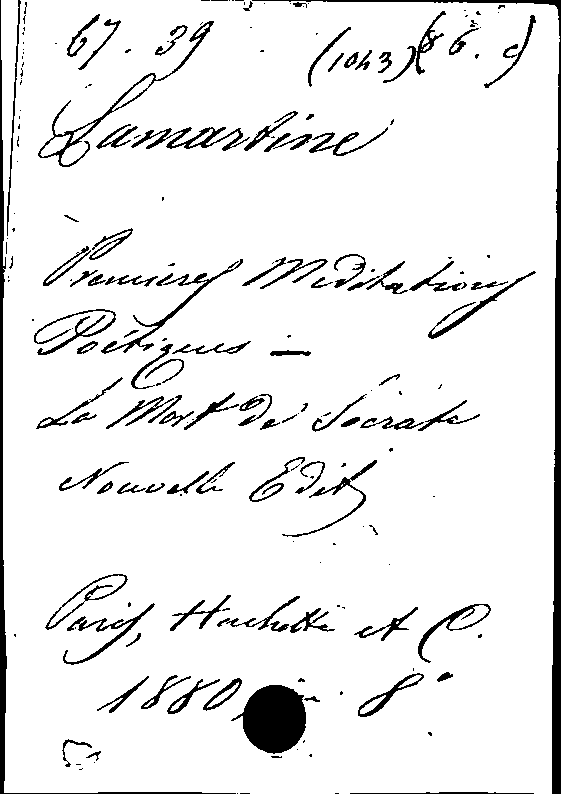 67. 39 (1043) (86. c)
Lamartine
Premières Meditations
Poétiques —
La Mort de Socrate
Nouvelle Edit
Paris, Hachette et C.
1880, in 8°